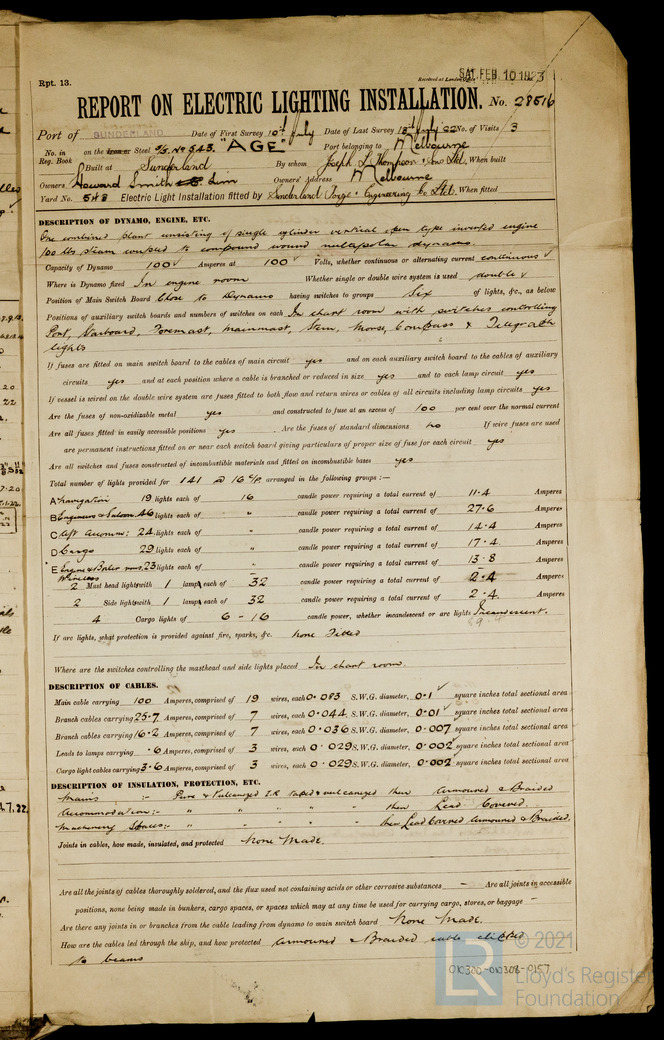 Rpt. 13.
Received at London Office SAT. FEB. 10 1923
REPORT ON ELECTRIC LIGHTING INSTALLATION. No. 28516
Port of SUNDERLAND Date of First Survey 10th July Date of Last Survey 13th July 22 No. of Visits 3
No. in Reg. Book on the Iron or Steel S/S. No 543. "AGE" Port belonging to Melbourne
Built at Sunderland By whom Joseph L. Thompson & Sons Ltd. When built
Owners Howard Smith Lim Owners' Address Melbourne
Yard No. 543 Electric Light Installation fitted by Sunderland Forge & Engineering Co Ltd. When fitted
DESCRIPTION OF DYNAMO, ENGINE, ETC.
One combined plant consisting of single cylinder vertical open type inverted engine
100 lbs steam coupled to compound wound multipolar dynamo.
Capacity of Dynamo 100 Amperes at 100 Volts, whether continuous or alternating current continuous
Where is Dynamo fixed In engine room Whether single or double wire system is used double
Position of Main Switch Board Close to Dynamo having switches to groups Six of lights, &c., as below
Positions of auxiliary switch boards and numbers of switches on each In chart room with switches controlling
Port, Starboard, Foremast, Mainmast, Stern, Morse, Compass & Telegraph
lights
If fuses are fitted on main switch board to the cables of main circuit yes and on each auxiliary switch board to the cables of auxiliary
circuits yes and at each position where a cable is branched or reduced in size yes and to each lamp circuit yes
If vessel is wired on the double wire system are fuses fitted to both flow and return wires or cables of all circuits including lamp circuits yes
Are the fuses of non-oxidizable metal yes and constructed to fuse at an excess of 100 per cent over the normal current
Are all fuses fitted in easily accessible positions yes Are the fuses of standard dimensions no If wire fuses are used
are permanent instructions fitted on or near each switch board giving particulars of proper size of fuse for each circuit yes
Are all switches and fuses constructed of incombustible materials and fitted on incombustible bases yes
Total number of lights provided for 141 @ 16 c/p. arranged in the following groups :—
A Navigation 19 lights each of 16 candle power requiring a total current of 11.4 Amperes
B Engineers & Saloon 46 lights each of " candle power requiring a total current of 27.6 Amperes
C Aft Accomm: 24 lights each of " candle power requiring a total current of 14.4 Amperes
D Cargo 29 lights each of " candle power requiring a total current of 17.4 Amperes
E Engine & Boiler rooms 23 lights each of " candle power requiring a total current of 13.8 Amperes
Wireless
2 Mast head lights with 1 lamp each of 32 candle power requiring a total current of 2.4 Amperes
2 Side lights with 1 lamp each of 32 candle power requiring a total current of 2.4 Amperes
4 Cargo lights of 6 - 16 candle power, whether incandescent or arc lights Incandescent.
If arc lights, what protection is provided against fire, sparks, &c. None Fitted
Where are the switches controlling the masthead and side lights placed In chart room.
DESCRIPTION OF CABLES.
Main cable carrying 100 Amperes, comprised of 19 wires, each 0.083 S.W.G. diameter, 0.1 square inches total sectional area
Branch cables carrying 25.7 Amperes, comprised of 7 wires, each 0.044 S.W.G. diameter, 0.01 square inches total sectional area
Branch cables carrying 16.2 Amperes, comprised of 7 wires, each 0.036 S.W.G. diameter, 0.007 square inches total sectional area
Leads to lamps carrying .6 Amperes, comprised of 3 wires, each 0.029 S.W.G. diameter, 0.002 square inches total sectional area
Cargo light cables carrying 3.6 Amperes, comprised of 3 wires, each 0.029 S.W.G. diameter, 0.002 square inches total sectional area
DESCRIPTION OF INSULATION, PROTECTION, ETC.
Mains :- Pure & Vulcanized I.R. taped & vulcanized then Armoured & Braided
Accommodation :- " " " " " then Lead Covered.
Machinery Spaces :- " " " " " then Lead Covered Armoured & Braided.
Joints in cables, how made, insulated, and protected None Made.
Are all the joints of cables thoroughly soldered, and the flux used not containing acids or other corrosive substances — Are all joints in accessible
positions, none being made in bunkers, cargo spaces, or spaces which may at any time be used for carrying cargo, stores, or baggage —
Are there any joints in or branches from the cable leading from dynamo to main switch board None Made.
How are the cables led through the ship, and how protected Armoured & Braided cable clipped
to beams
010300-010308-0157
LR © 2021
Lloyd's Register
Foundation